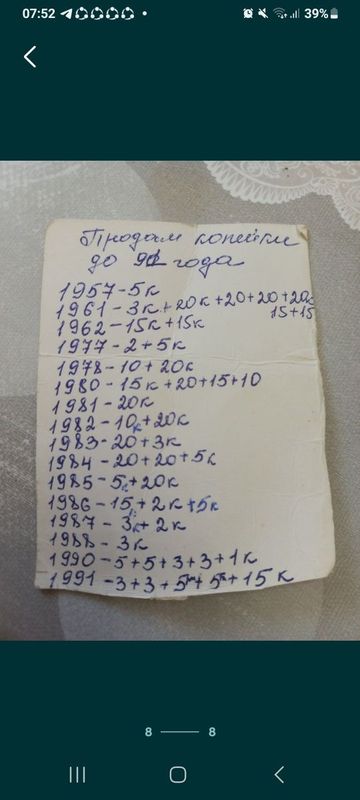 07:52
39%
Продам копейки
до 91 года
1957-5к
1961-3к+20к+20+20+20к
15+15
1962-15к+15к
1977-2+5к
1978-10+20к
1980-15к+20+15+10
1981-20к
1982-10к+20к
1983-20+3к
1984-20+20+5к
1985-5к+20к
1986-15к+2к+5к
1987-3к+2к
1988-3к
1990-5+5+3+3+1к
1991-3+3+5м+5л+15к
8 8